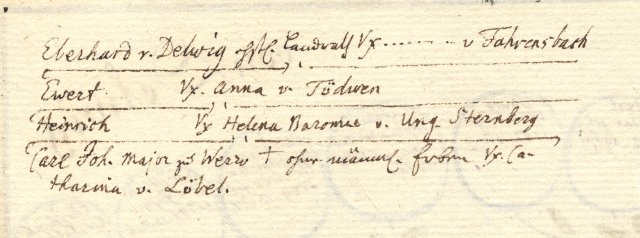 Eberhard v. Delwig ehstl. Landrath Vx ........ v Fahrensbach
Ewert Vx. Anna v. Tödwen
Heinrich Vx Helena Baronne v. Ung. Sternberg
Carl Joh. Major zu Werro † ohne männl. Erben Vx. Ca-
tharina v. Löbel.